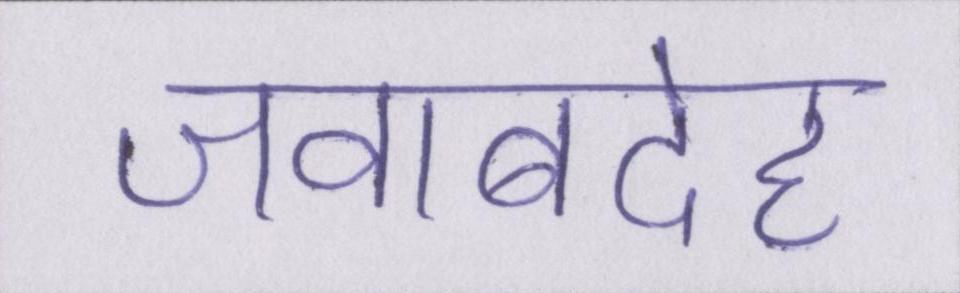 जवाबदेह